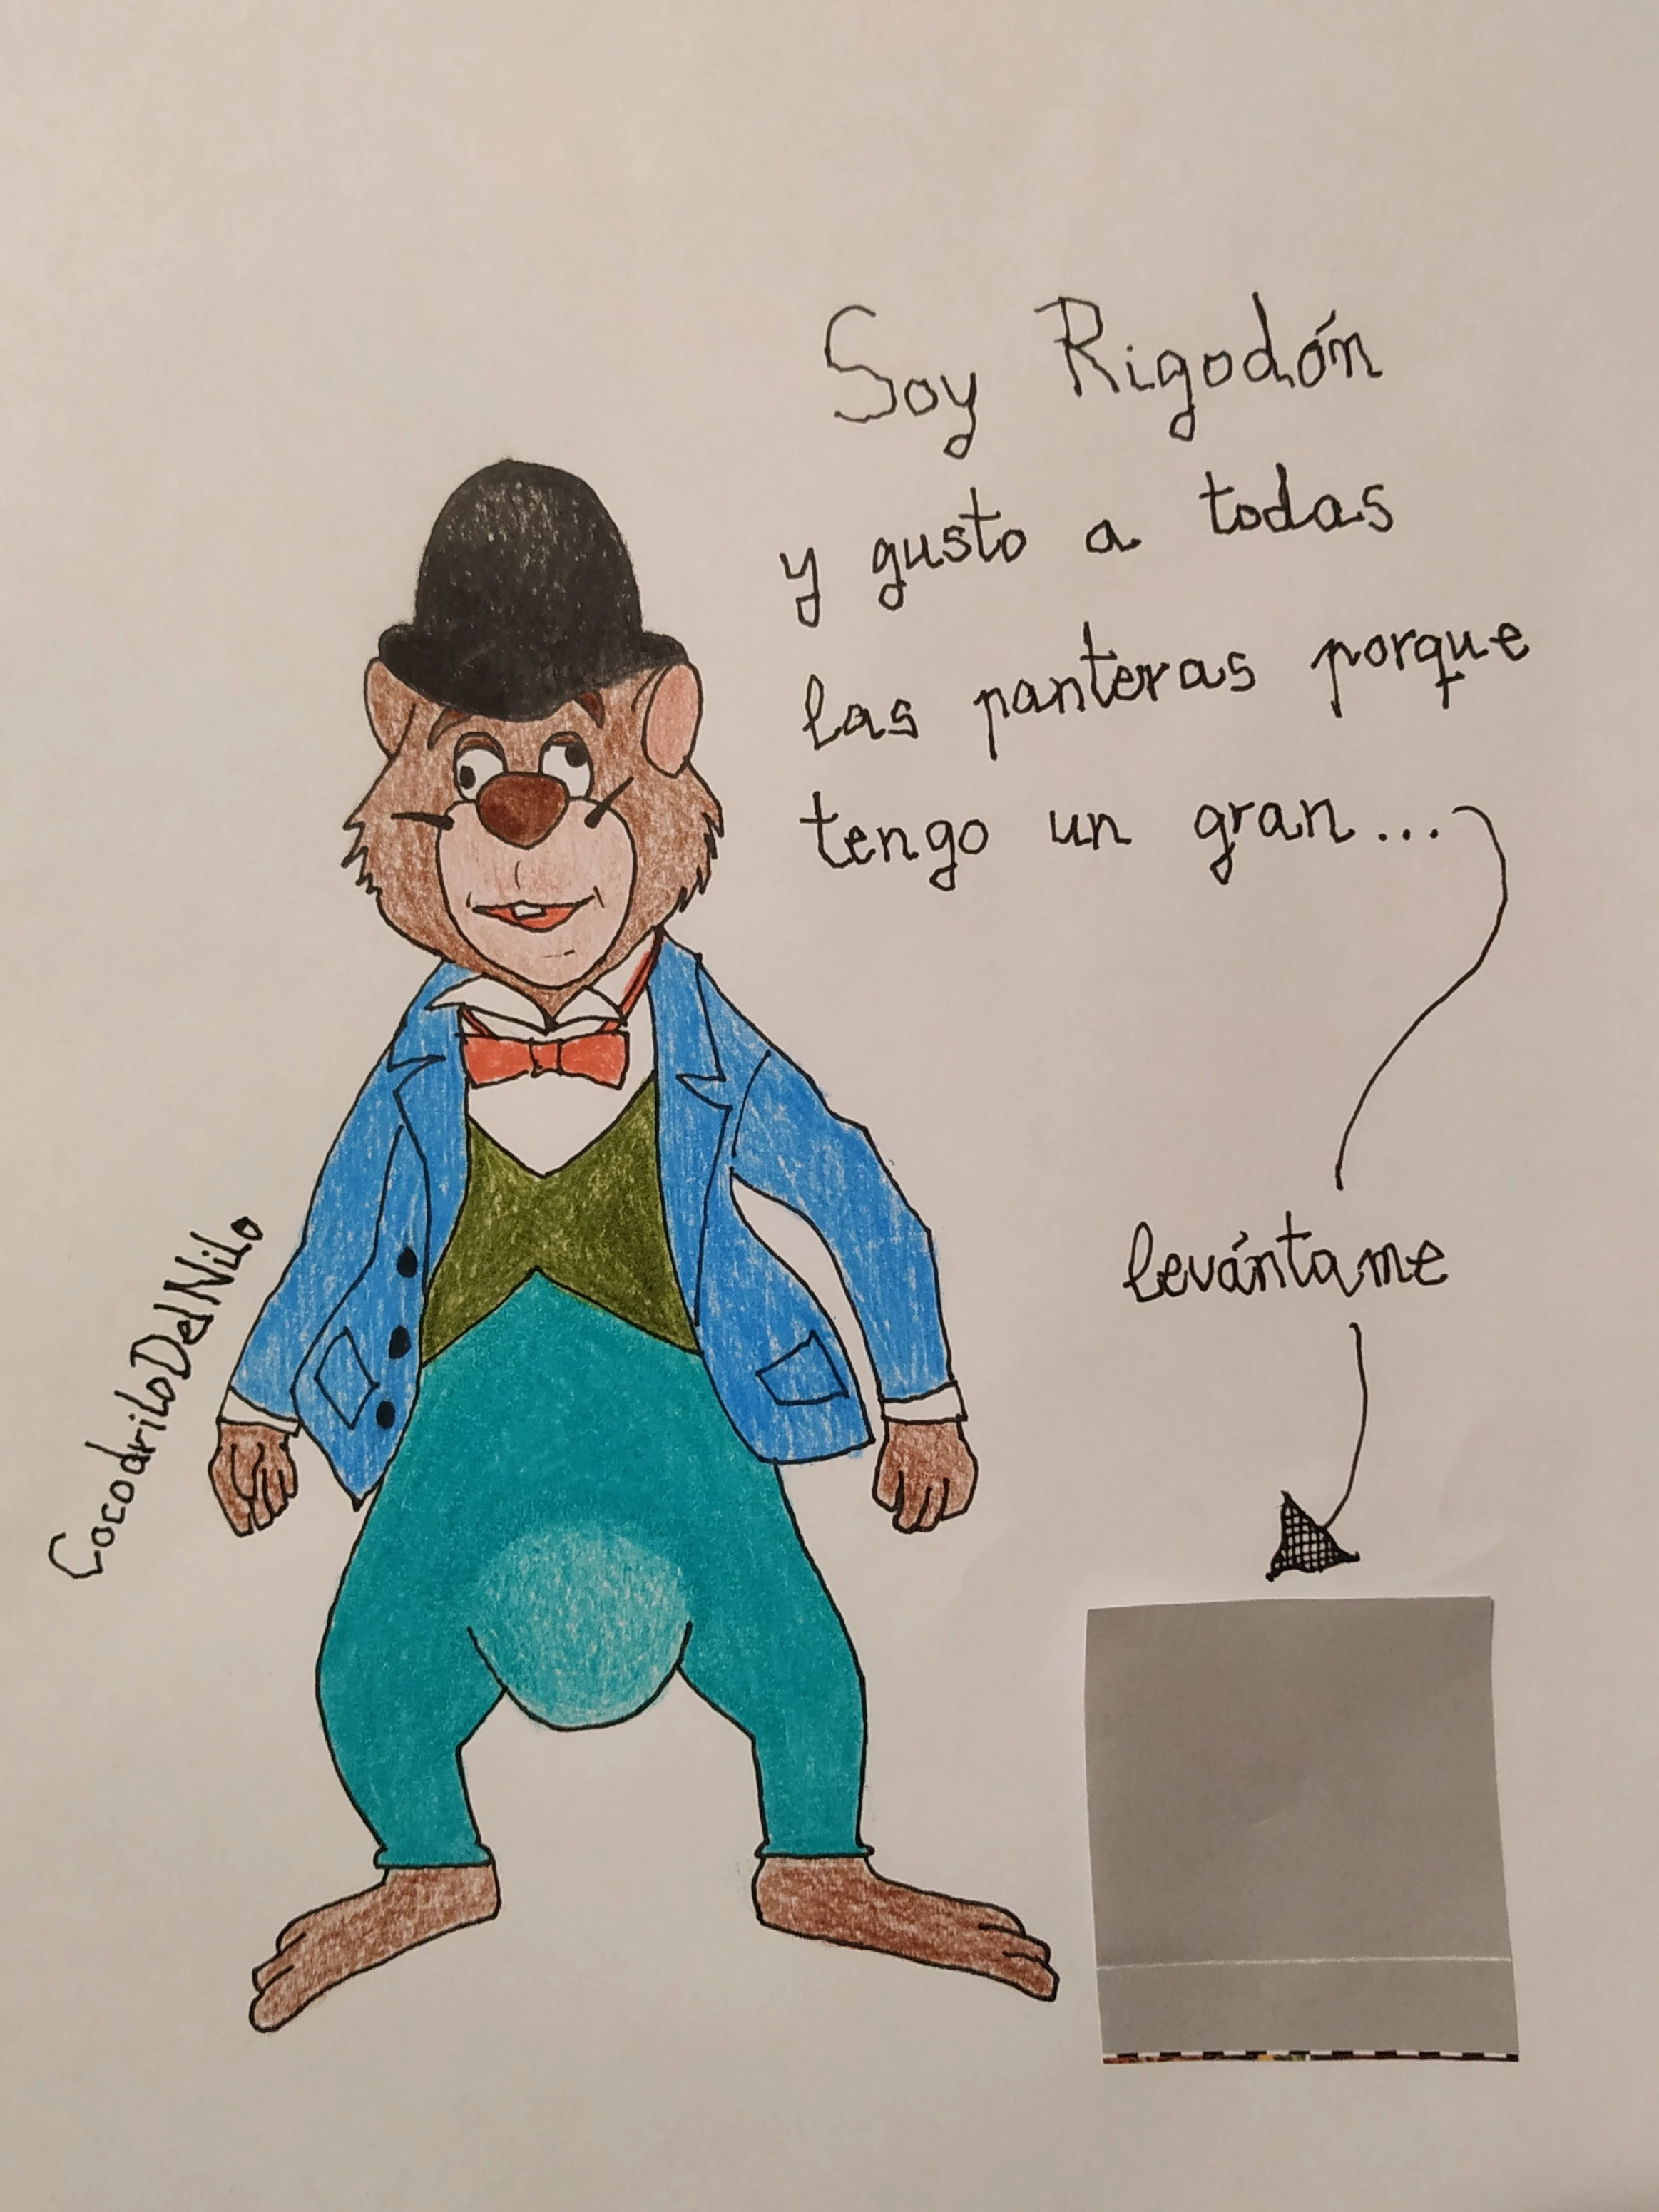 Soy Rigodón
y gusto a todas
las panteras porque
tengo un gran...
levántame
CocodriloDelNilo